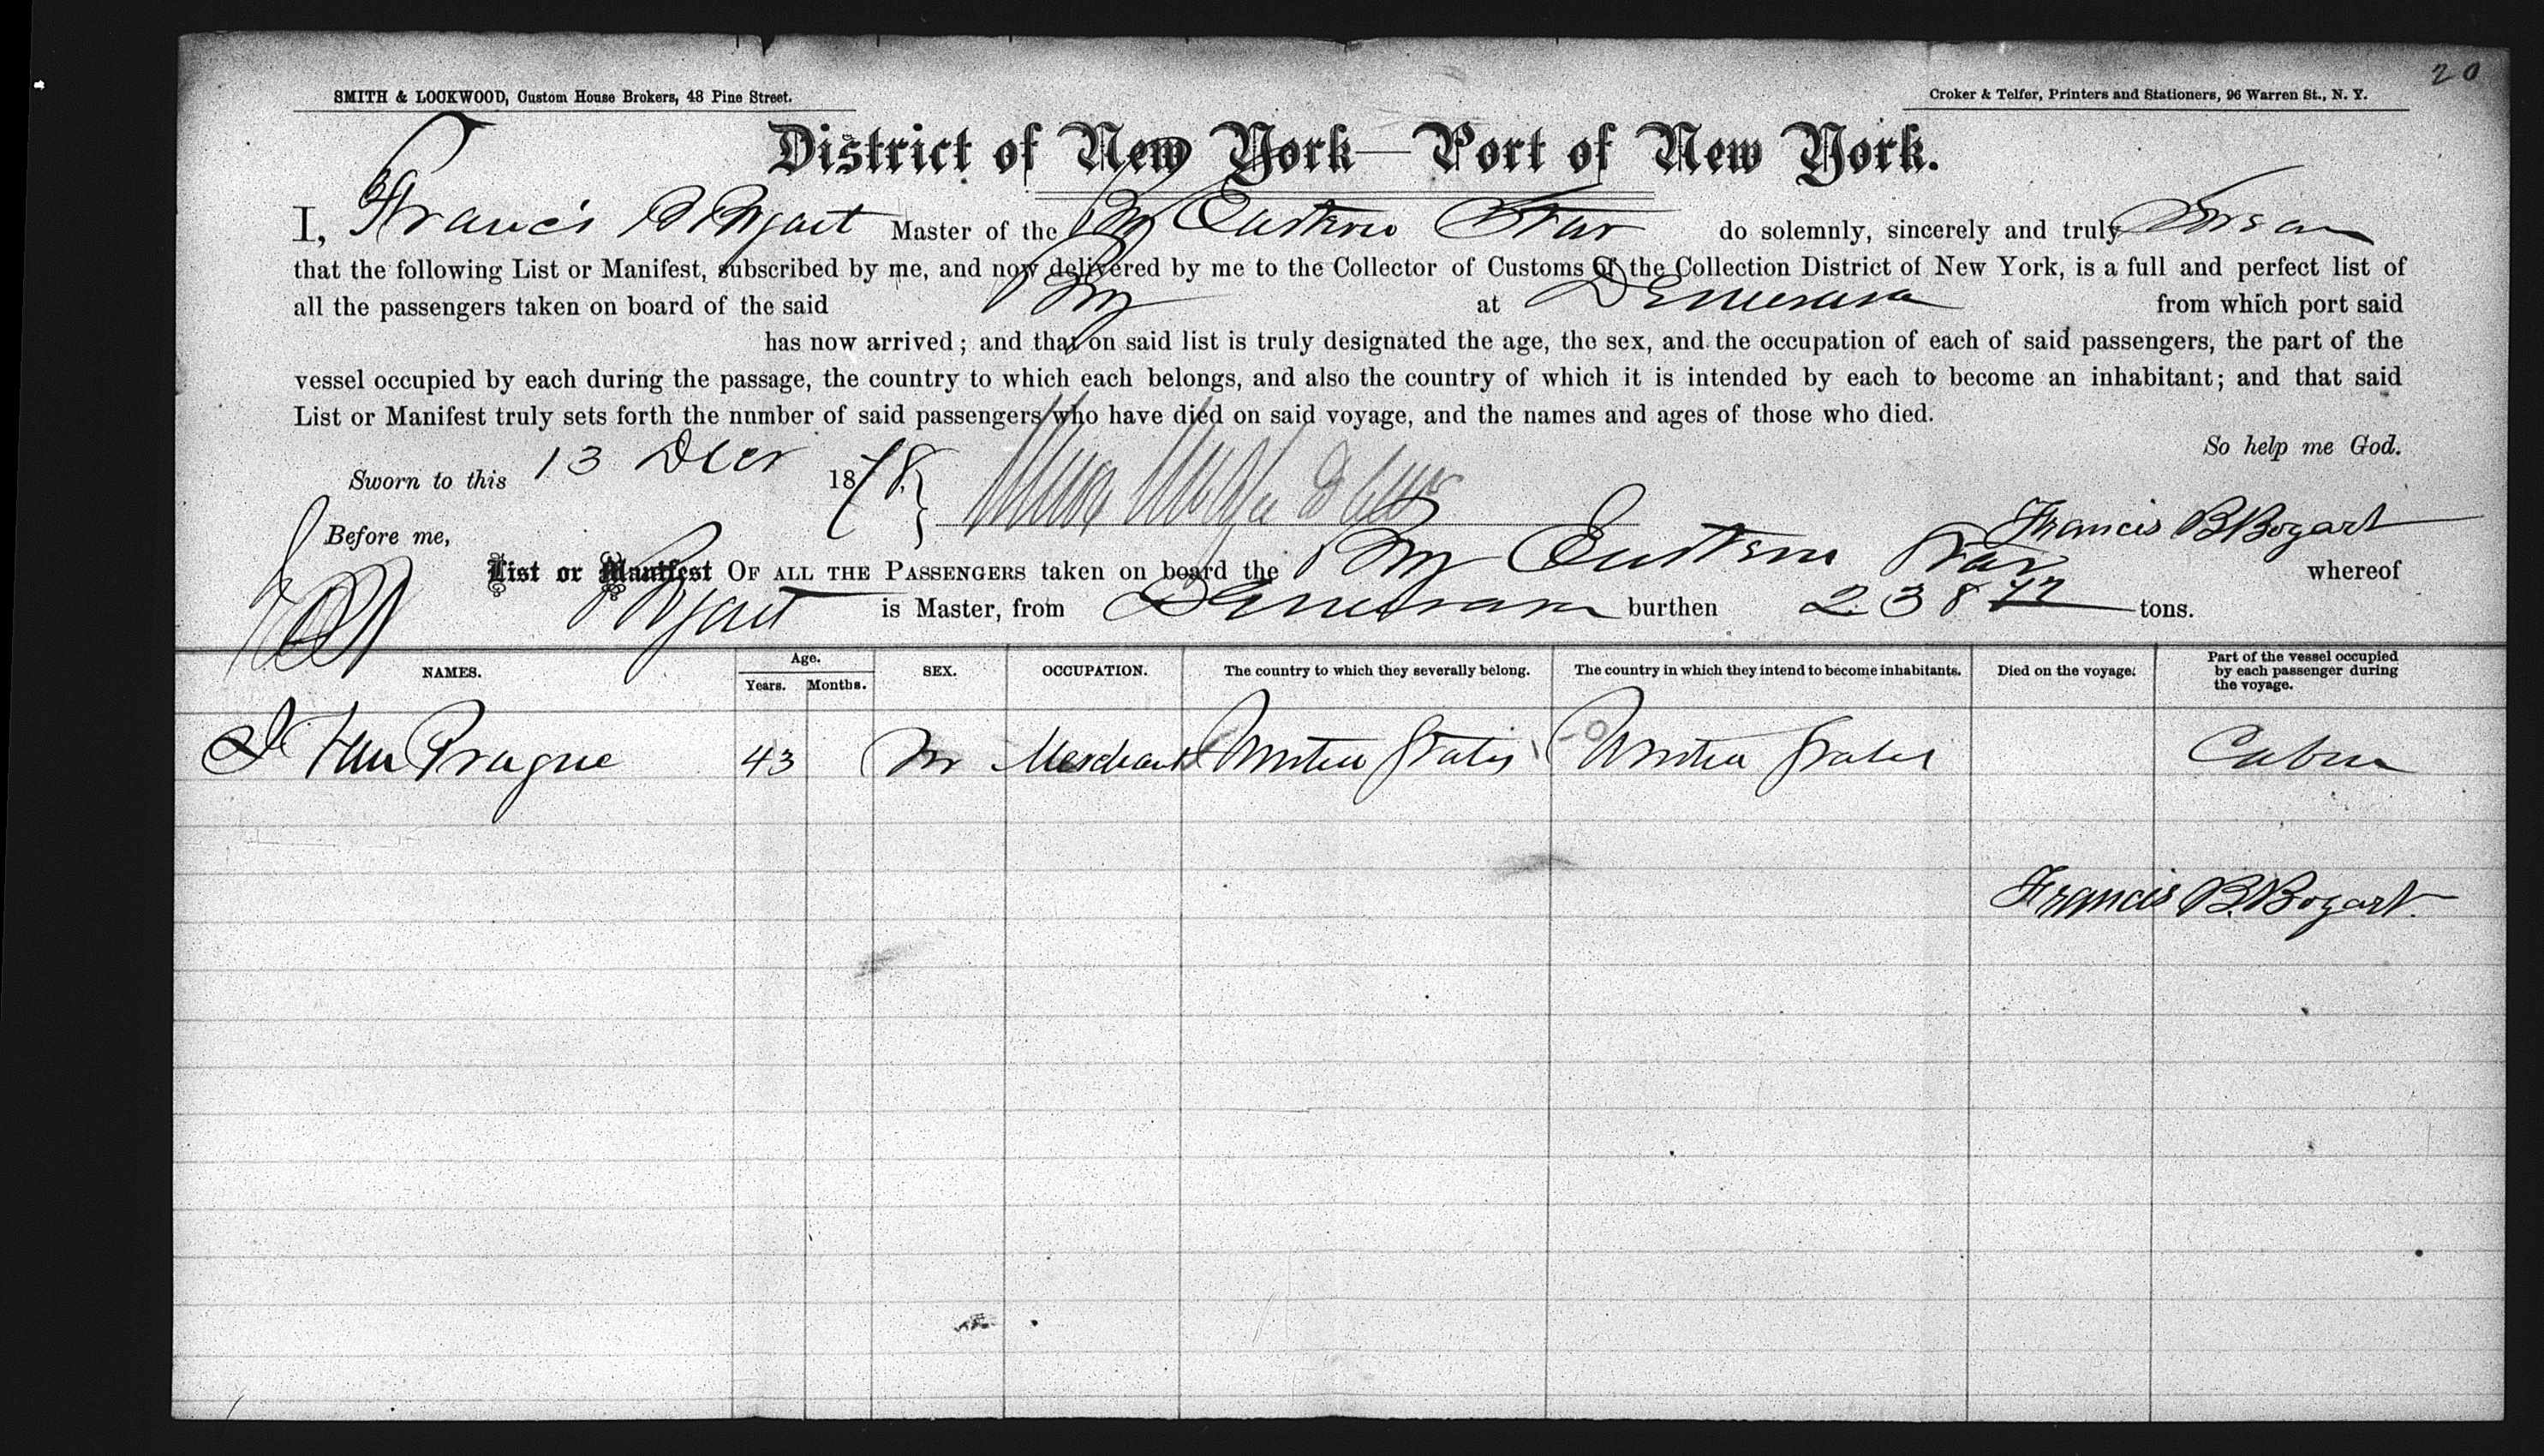 20
SMITH & LOCKWOOD, Custom House Brokers, 48 Pine Street.
Croker & Telfer, Printers and Stationers, 96 Warren St., N. Y.
District of New York—Port of New York.
I, Francis B Bogart Master of the Brig Eastern Star do solemnly, sincerely and truly Swear
that the following List or Manifest, subscribed by me, and now delivered by me to the Collector of Customs of the Collection District of New York, is a full and perfect list of
all the passengers taken on board of the said Brig at Demerara from which port said
has now arrived; and that on said list is truly designated the age, the sex, and the occupation of each of said passengers, the part of the
vessel occupied by each during the passage, the country to which each belongs, and also the country of which it is intended by each to become an inhabitant; and that said
List or Manifest truly sets forth the number of said passengers who have died on said voyage, and the names and ages of those who died.
So help me God.
Sworn to this 13 Decr 1878
Francis B Bogart
Before me,
List or Manifest OF ALL THE PASSENGERS taken on board the Brig Eastern Star whereof
Bogart is Master, from Demerara burthen 238 77 tons.
NAMES. Age. Years. Months. SEX. OCCUPATION. The country to which they severally belong. The country in which they intend to become inhabitants. Died on the voyage. Part of the vessel occupied by each passenger during the voyage.
Van Prague 43 M Merchant United States United States Cabin
Francis B. Bogart.